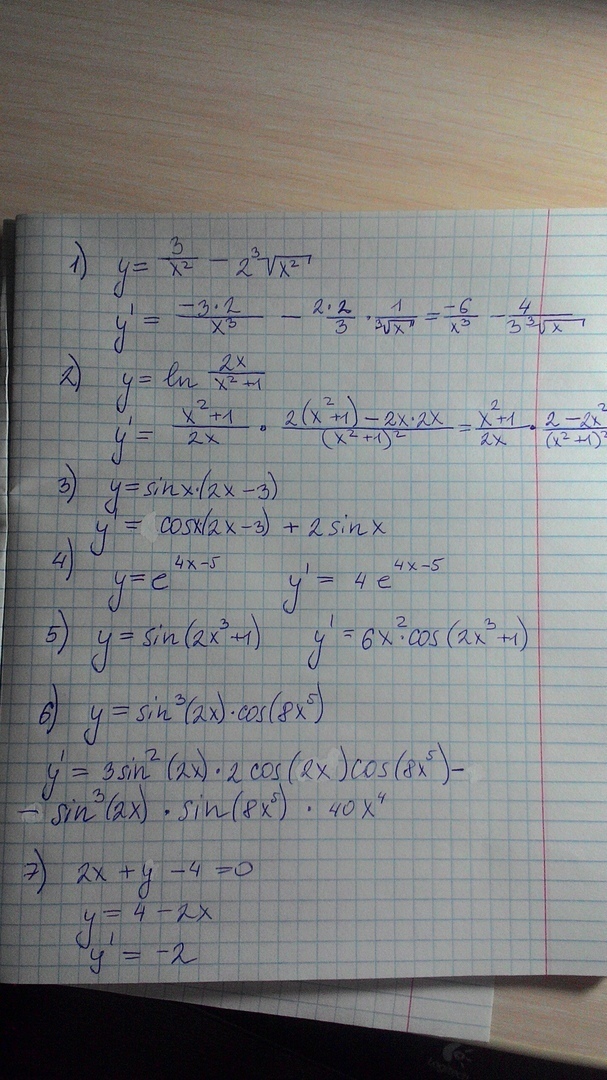 1) y = 3/x² − 2 ³√x²
y' = −3·2/x³ − 2·2/3 · 1/³√x = −6/x³ − 4/3³√x
2) y = ln 2x/x²+1
y' = x²+1/2x · 2(x²+1) − 2x·2x/(x²+1)² = x²+1/2x · 2−2x²/(x²+1)²
3) y = sinx·(2x−3)
y' = cosx(2x−3) + 2 sinx
4) y = e^4x−5 y' = 4 e^4x−5
5) y = sin(2x³+1) y' = 6x²·cos(2x³+1)
6) y = sin³(2x)·cos(8x⁵)
y' = 3sin²(2x)·2cos(2x)cos(8x⁵)−
− sin³(2x) · sin(8x⁵) · 40x⁴
7) 2x + y − 4 = 0
y = 4 − 2x
y' = −2